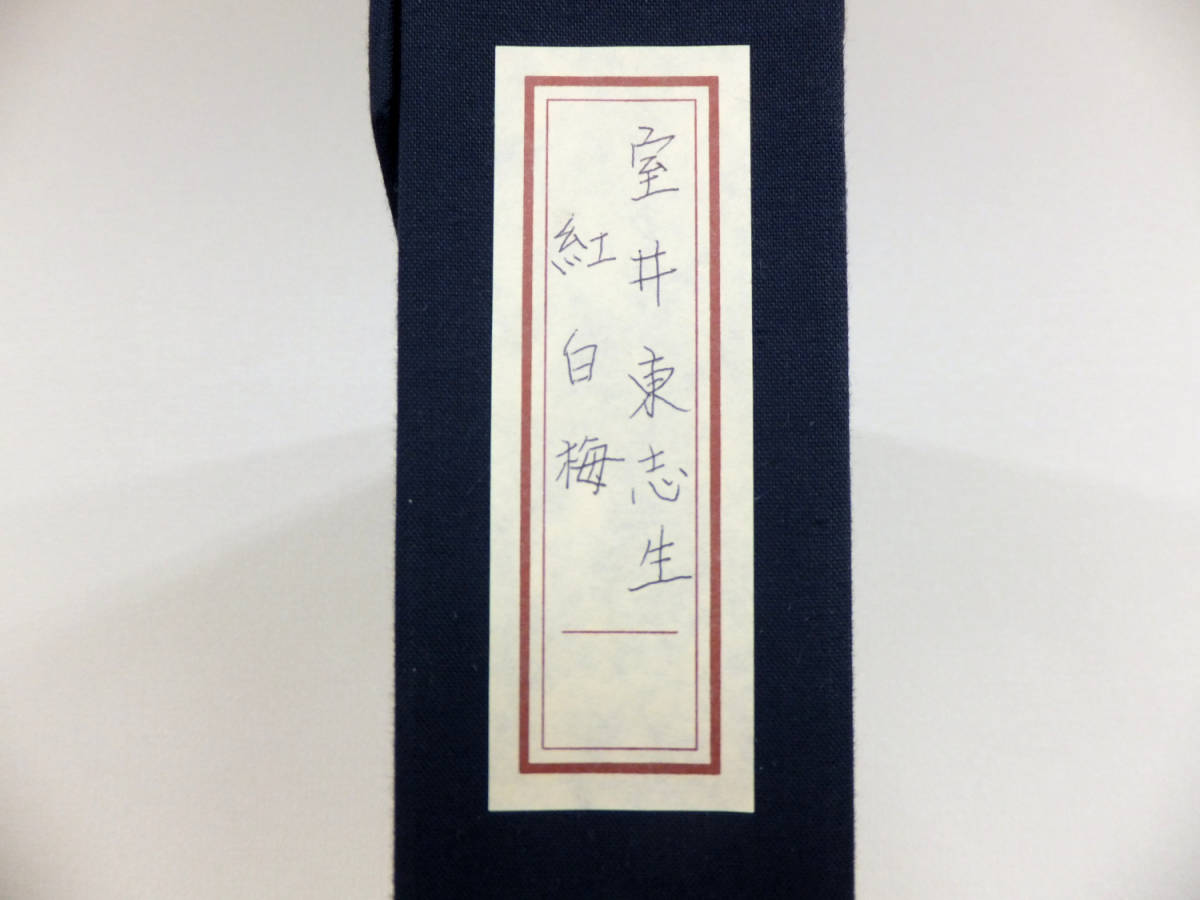 室井東志生
紅白梅